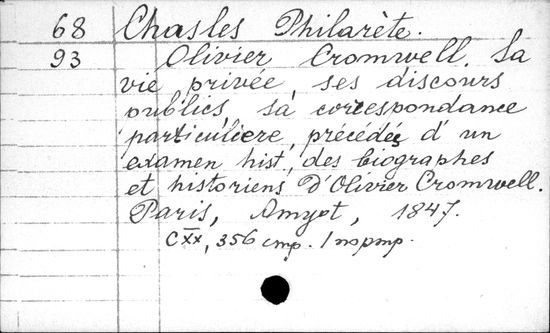 68 Chasles Philarète.
93 Olivier Cromwell. Sa
vie privée, ses discours
publics, sa correspondance
particuliere, précédés d'un
examen hist., des biographes
et historiens D'Olivier Cromwell.
Paris, Amyot, 1847.
CXX, 356 стр. 1 портр.